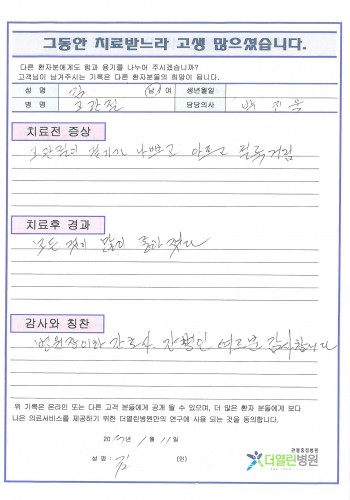 그동안 치료받느라 고생 많으셨습니다.
다른 환자분에게도 힘과 용기를 나누어 주시겠습니까?
고객님이 남겨주시는 기록은 다른 환자분들의 희망이 됩니다.
성 명 김 (남) 여 생년월일
병 명 고관절 담당의사 백
치료전 증상
고관절이 걷기가 나쁘고 아프고 절룩거림
치료후 경과
모든 것이 많이 좋아 졌다
감사와 칭찬
병원장이하 간호사, 간병인 여러분 감사합니다
위 기록은 온라인 또는 다른 고객 분들에게 공개 될 수 있으며, 더 많은 환자 분들에게 보다
나은 의료서비스를 제공하기 위한 더열린병원만의 연구에 사용 되는 것을 동의합니다.
년 1 월 11 일
성 명 : 김 (인)
관절중점병원
더열린병원